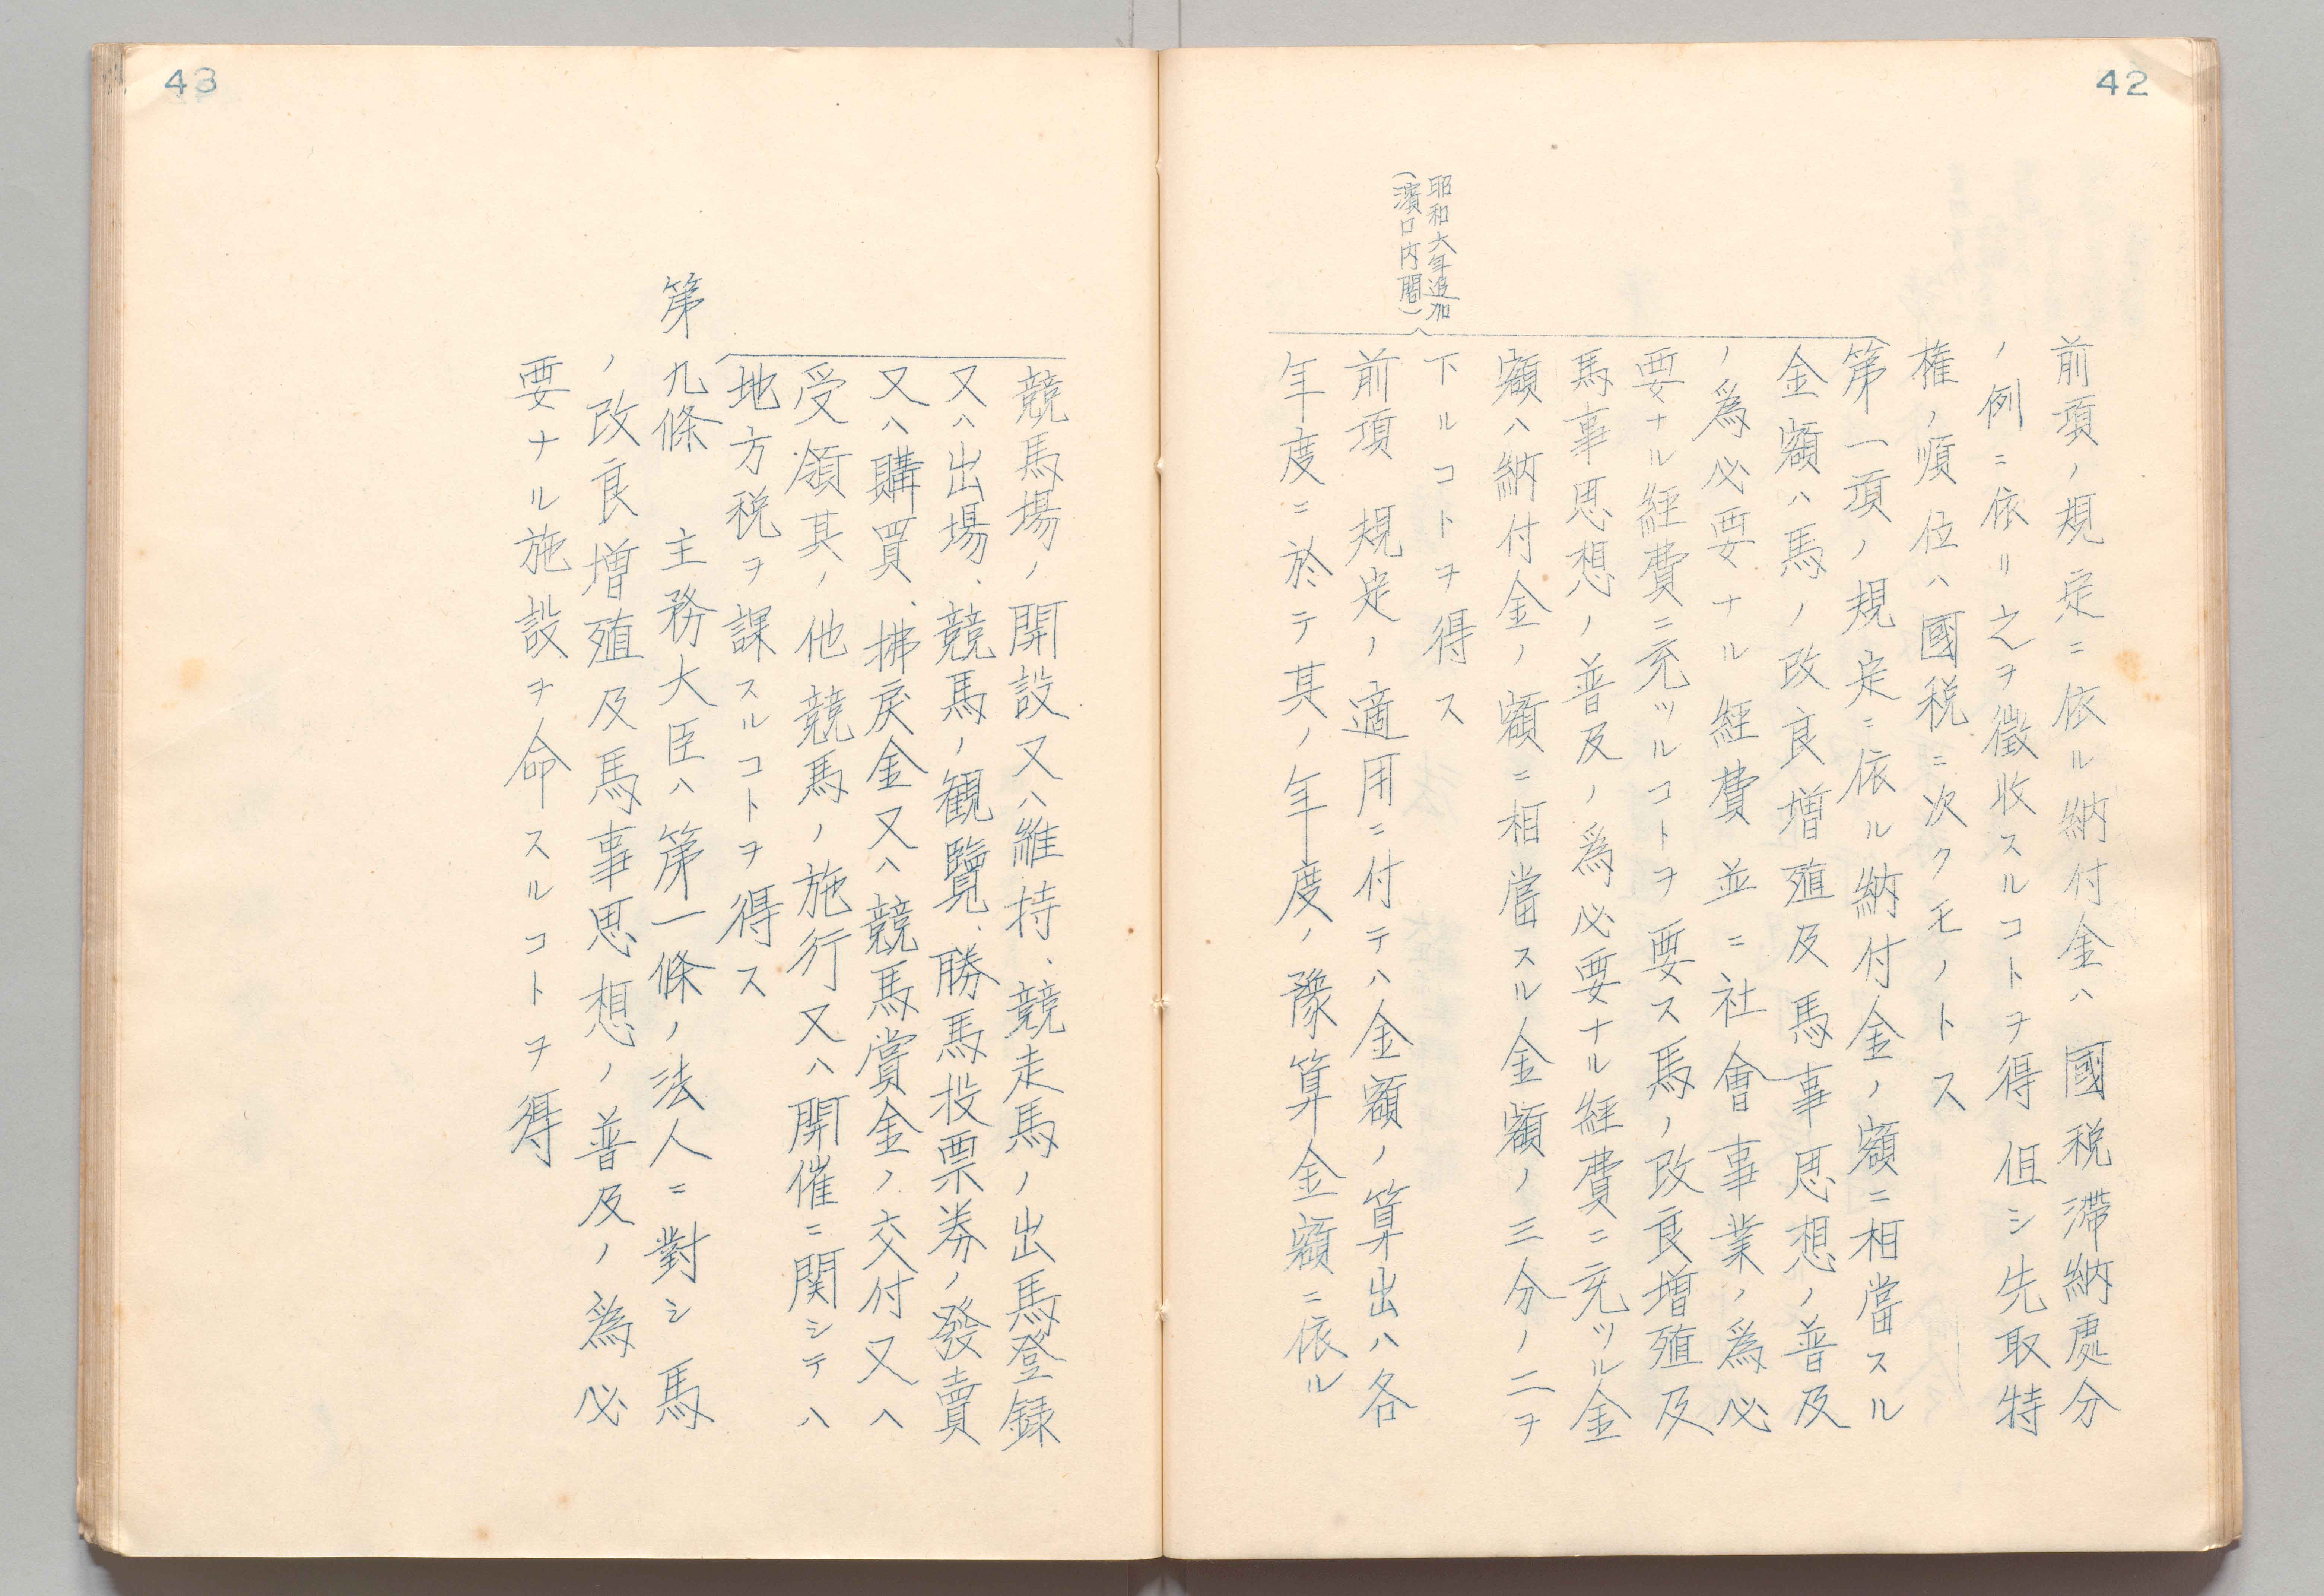 42
前項ノ規定ニ依ル納付金ハ國税滞納處分
ノ例ニ依リ之ヲ徴收スルコトヲ得但シ先取特
権ノ順位ハ國税ニ次クモノトス
第一項ノ規定ニ依ル納付金ノ額ニ相當スル
金額ハ馬ノ改良増殖及馬事思想ノ普及
ノ為必要ナル経費並ニ社會事業ノ為必
要ナル経費ニ充ツルコトヲ要ス馬ノ改良増殖及
馬事思想ノ普及ノ為必要ナル経費ニ充ツル金
額ハ納付金ノ額ニ相當スル金額ノ三分ノ二ヲ
昭和六年追加
(濱口内閣)
下ルコトヲ得ス
前項規定ノ適用ニ付テハ金額ノ算出ハ各
年度ニ於テ其ノ年度ノ豫算金額ニ依ル
43
競馬場ノ開設又ハ維持、競走馬ノ出馬登録
又ハ出場、競馬ノ観覽、勝馬投票券ノ發賣
又ハ購買、拂戻金又ハ競馬賞金ノ交付又ハ
受領其ノ他競馬ノ施行又ハ開催ニ関シテハ
地方税ヲ課スルコトヲ得ス
第九條 主務大臣ハ第一條ノ法人ニ對シ馬
ノ改良増殖及馬事思想ノ普及ノ為必
要ナル施設ヲ命スルコトヲ得